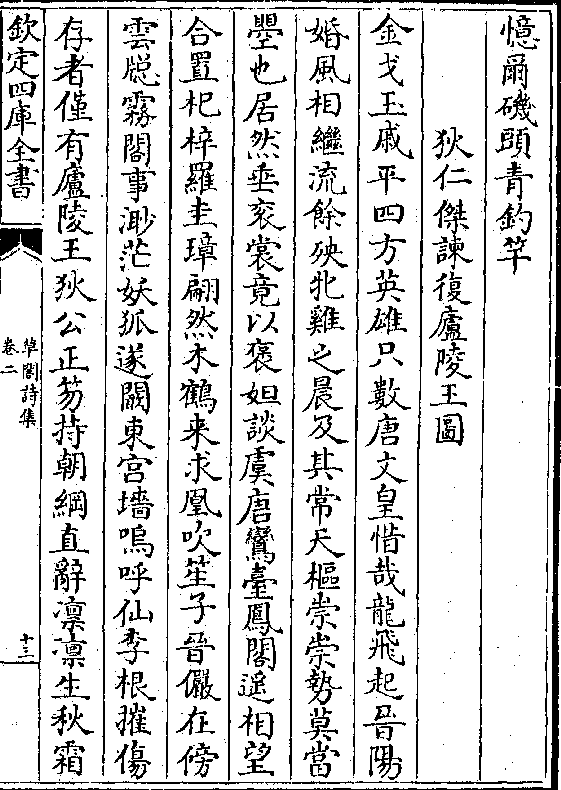 憶爾磯頭青釣竿
狄仁傑諫復廬陵王圖
金戈玉戚平四方英雄只數唐文皇惜哉龍飛起晉陽
婚風相繼流餘殃牝雞之晨及其常天樞崇崇勢莫當
曌也居然垂衮裳竟以褒妲談虞唐鸞臺鳳閣遥相望
合置杞梓羅圭璋翩然木鶴来求凰吹笙子晉儼在傍
雲牕霧閣事渺茫妖狐遂闞東宫墻嗚呼仙李根摧傷
存者僅有廬陵王狄公正笏持朝綱直辭凛凛生秋霜
欽定四庫全書
草閣詩集
卷二
十三